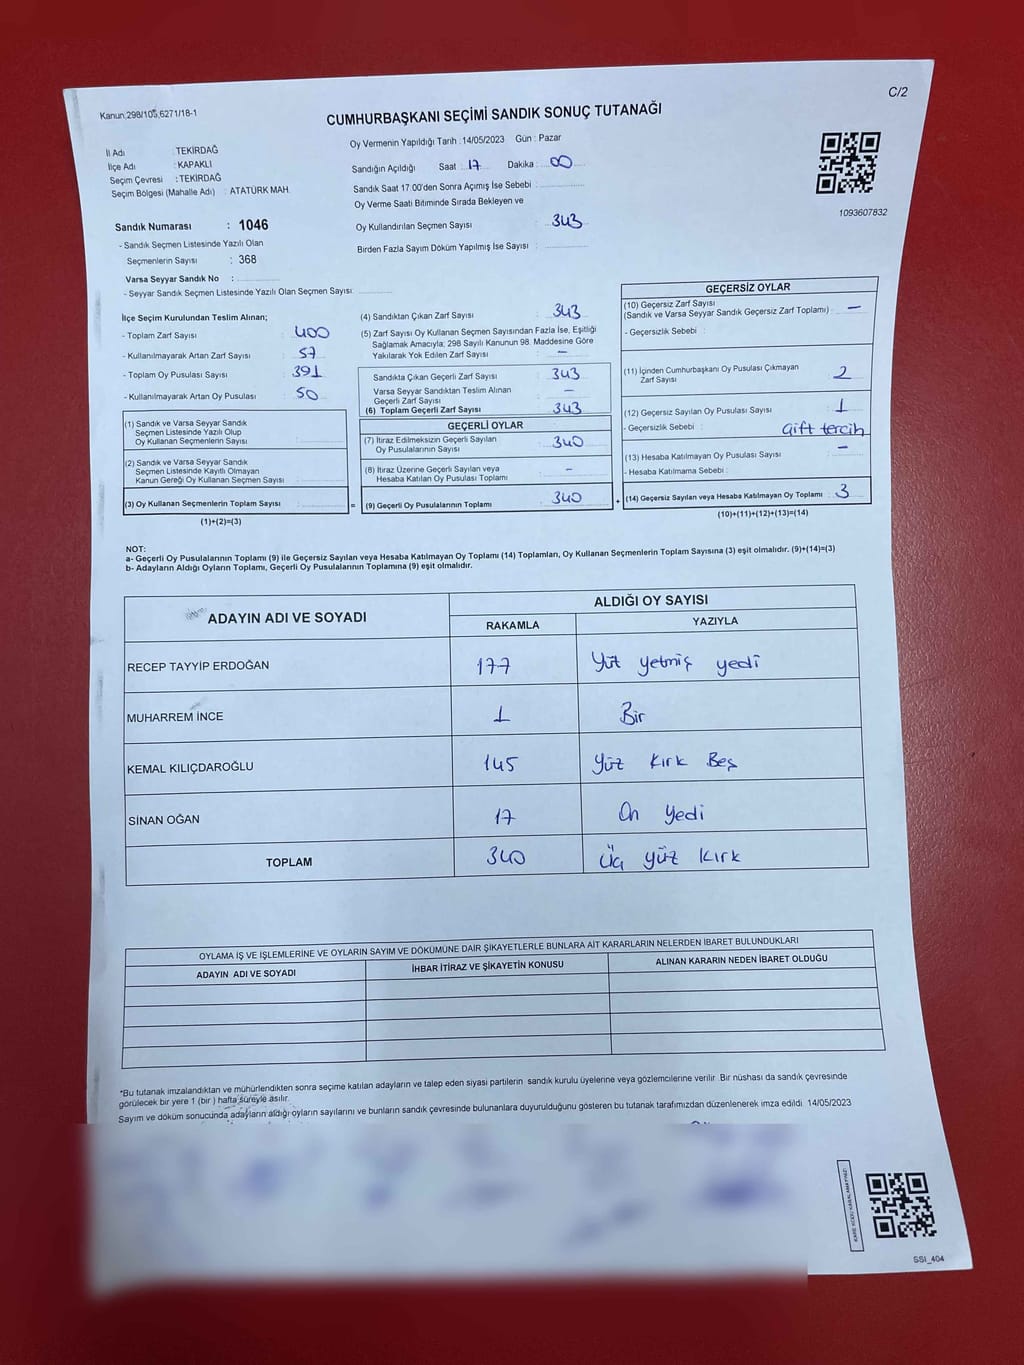 C/2
Kanun,298/105,6271/18-1
CUMHURBAŞKANI SEÇİMİ SANDIK SONUÇ TUTANAĞI
İl Adı : TEKİRDAĞ
İlçe Adı : KAPAKLI
Seçim Çevresi : TEKİRDAĞ
Seçim Bölgesi (Mahalle Adı) : ATATÜRK MAH.
Oy Vermenin Yapıldığı Tarih : 14/05/2023 Gün : Pazar
Sandığın Açıldığı Saat : 17 Dakika : 00
Sandık Saat 17:00'den Sonra Açımış İse Sebebi :
Oy Verme Saati Bitiminde Sırada Bekleyen ve
Oy Kullandırılan Seçmen Sayısı : 343
Birden Fazla Sayım Döküm Yapılmış İse Sayısı :
1093607832
Sandık Numarası : 1046
- Sandık Seçmen Listesinde Yazılı Olan
Seçmenlerin Sayısı : 368
Varsa Seyyar Sandık No :
- Seyyar Sandık Seçmen Listesinde Yazılı Olan Seçmen Sayısı:
İlçe Seçim Kurulundan Teslim Alınan;
- Toplam Zarf Sayısı : 400
- Kullanılmayarak Artan Zarf Sayısı : 57
- Toplam Oy Pusulası Sayısı : 391
- Kullanılmayarak Artan Oy Pusulası : 50
(1) Sandık ve Varsa Seyyar Sandık
Seçmen Listesinde Yazılı Olup
Oy Kullanan Seçmenlerin Sayısı :
(2) Sandık ve Varsa Seyyar Sandık
Seçmen Listesinde Kayıtlı Olmayan
Kanun Gereği Oy Kullanan Seçmen Sayısı :
(3) Oy Kullanan Seçmenlerin Toplam Sayısı :
(1)+(2)=(3)
(4) Sandıktan Çıkan Zarf Sayısı : 343
(5) Zarf Sayısı Oy Kullanan Seçmen Sayısından Fazla İse, Eşitliği
Sağlamak Amacıyla; 298 Sayılı Kanunun 98. Maddesine Göre
Yakılarak Yok Edilen Zarf Sayısı : –
Sandıkta Çıkan Geçerli Zarf Sayısı : 343
Varsa Seyyar Sandıktan Teslim Alınan
Geçerli Zarf Sayısı : –
(6) Toplam Geçerli Zarf Sayısı : 343
GEÇERLİ OYLAR
(7) İtiraz Edilmeksizin Geçerli Sayılan
Oy Pusulalarının Sayısı : 340
(8) İtiraz Üzerine Geçerli Sayılan veya
Hesaba Katılan Oy Pusulası Toplamı : –
= (9) Geçerli Oy Pusulalarının Toplamı : 340 +
GEÇERSİZ OYLAR
(10) Geçersiz Zarf Sayısı
(Sandık ve Varsa Seyyar Sandık Geçersiz Zarf Toplamı) : –
- Geçersizlik Sebebi :
(11) İçinden Cumhurbaşkanı Oy Pusulası Çıkmayan
Zarf Sayısı : 2
(12) Geçersiz Sayılan Oy Pusulası Sayısı : 1
- Geçersizlik Sebebi : Çift tercih
(13) Hesaba Katılmayan Oy Pusulası Sayısı : –
- Hesaba Katılmama Sebebi :
(14) Geçersiz Sayılan veya Hesaba Katılmayan Oy Toplamı : 3
(10)+(11)+(12)+(13)=(14)
NOT:
a- Geçerli Oy Pusulalarının Toplamı (9) ile Geçersiz Sayılan veya Hesaba Katılmayan Oy Toplamı (14) Toplamları, Oy Kullanan Seçmenlerin Toplam Sayısına (3) eşit olmalıdır. (9)+(14)=(3)
b- Adayların Aldığı Oyların Toplamı, Geçerli Oy Pusulalarının Toplamına (9) eşit olmalıdır.
ADAYIN ADI VE SOYADI
ALDIĞI OY SAYISI
RAKAMLA YAZIYLA
RECEP TAYYİP ERDOĞAN 177 Yüz yetmiş yedi
MUHARREM İNCE 1 Bir
KEMAL KILIÇDAROĞLU 145 Yüz Kırk Beş
SİNAN OĞAN 17 On Yedi
TOPLAM 340 Üç yüz Kırk
OYLAMA İŞ VE İŞLEMLERİNE VE OYLARIN SAYIM VE DÖKÜMÜNE DAİR ŞİKAYETLERLE BUNLARA AİT KARARLARIN NELERDEN İBARET BULUNDUKLARI
ADAYIN ADI VE SOYADI İHBAR İTİRAZ VE ŞİKAYETİN KONUSU ALINAN KARARIN NEDEN İBARET OLDUĞU
*Bu tutanak imzalandıktan ve mühürlendikten sonra seçime katılan adayların ve talep eden siyasi partilerin sandık kurulu üyelerine veya gözlemcilerine verilir. Bir nüshası da sandık çevresinde
görülecek bir yere 1 (bir ) hafta süreyle asılır.
Sayım ve döküm sonucunda adayların aldığı oyların sayılarını ve bunların sandık çevresinde bulunanlara duyurulduğunu gösteren bu tutanak tarafımızdan düzenlenerek imza edildi. 14/05/2023
SSI_404